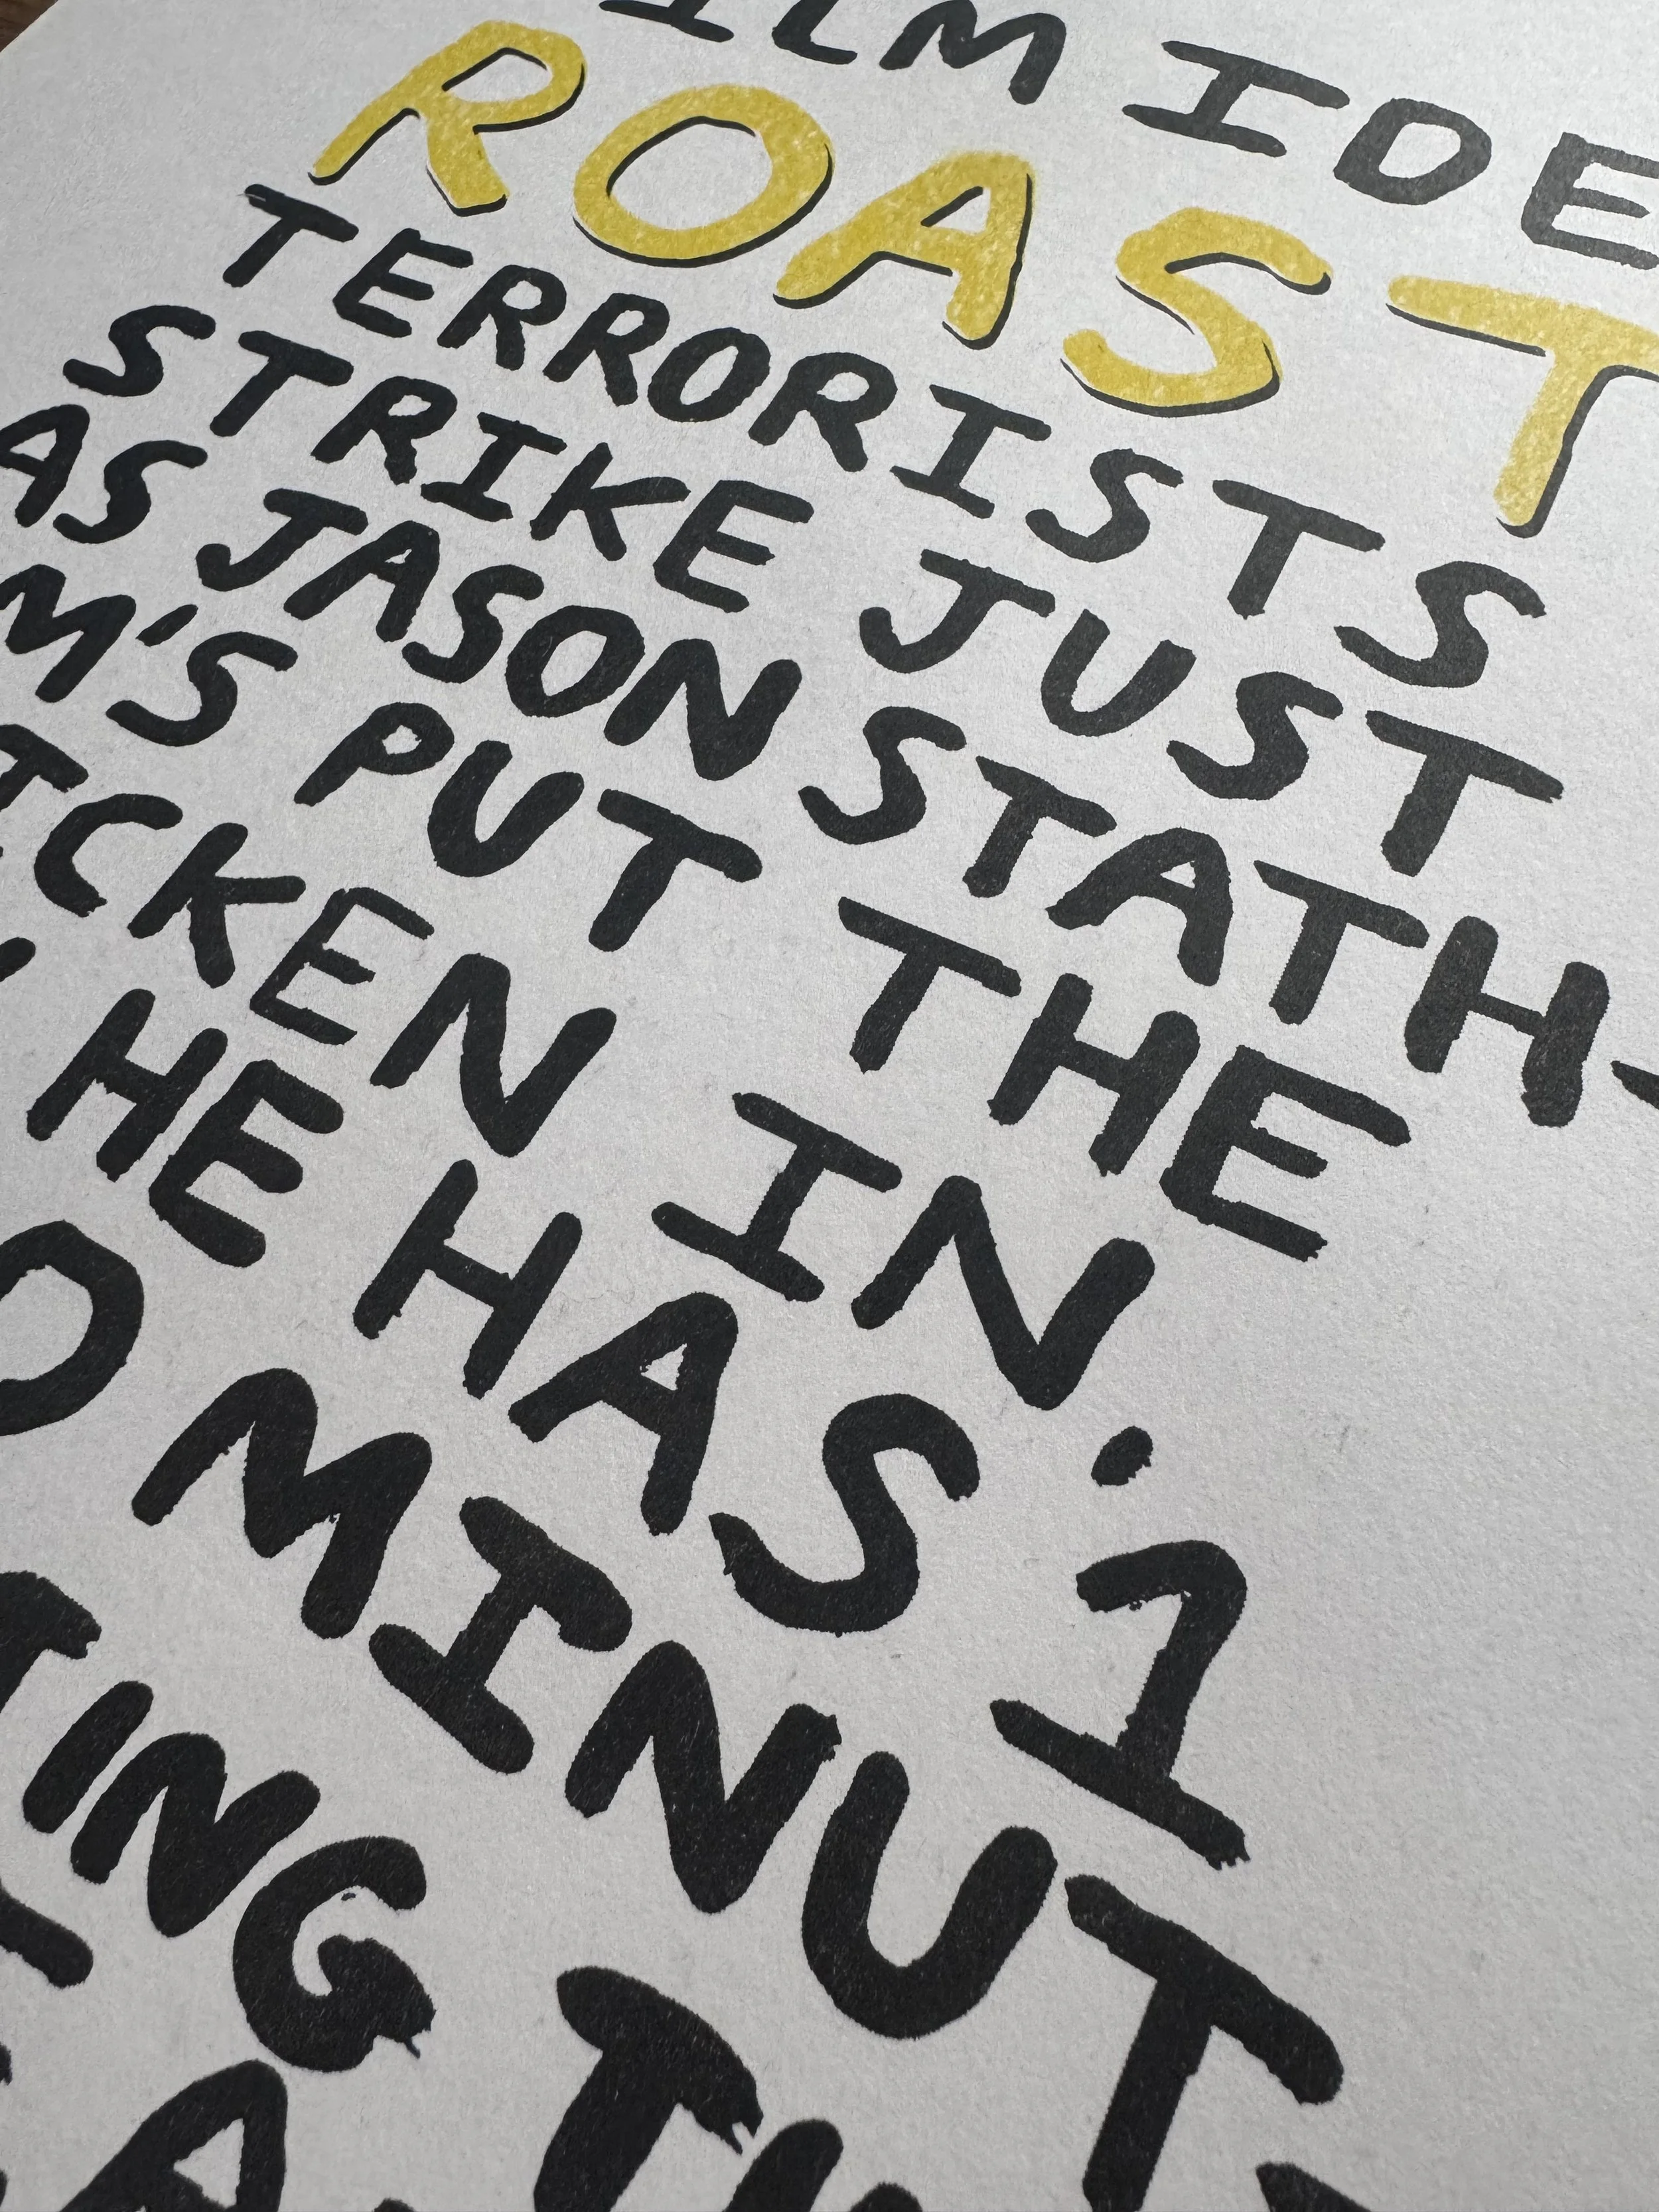 ILM IDE
ROAST
TERRORISTS
STRIKE JUST
AS JASON STATH-
M'S PUT THE
ICKEN IN.
HE HAS 1
O MINUT
ING